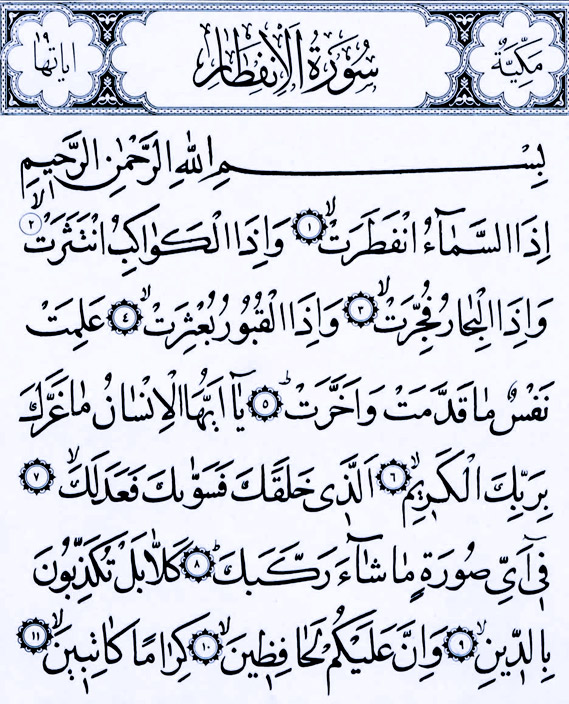 مَكِّيَّةٌ سُورَةُ الْاِنْفِطَارِ اٰيَاتُهَا ١٩
بِسْمِ اللهِ الرَّحْمٰنِ الرَّحٖيمِ
اِذَا السَّمَٓاءُ انْفَطَرَتْۙ ﴿١﴾ وَاِذَا الْكَوَاكِبُ انْتَثَرَتْۙ ﴿٢﴾
وَاِذَا الْبِحَارُ فُجِّرَتْۙ ﴿٣﴾ وَاِذَا الْقُبُورُ بُعْثِرَتْۙ ﴿٤﴾ عَلِمَتْ
نَفْسٌ مَا قَدَّمَتْ وَاَخَّرَتْۜ ﴿٥﴾ يَٓا اَيُّهَا الْاِنْسَانُ مَا غَرَّكَ
بِرَبِّكَ الْكَرٖيمِۙ ﴿٦﴾ اَلَّذٖى خَلَقَكَ فَسَوّٰيكَ فَعَدَلَكَۙ ﴿٧﴾
فٖٓى اَىِّ صُورَةٍ مَا شَٓاءَ رَكَّبَكَۜ ﴿٨﴾ كَلَّا بَلْ تُكَذِّبُونَ
بِالدّٖينِۙ ﴿٩﴾ وَاِنَّ عَلَيْكُمْ لَحَافِظٖينَۙ ﴿١٠﴾ كِرَامًا كَاتِبٖينَۙ ﴿١١﴾